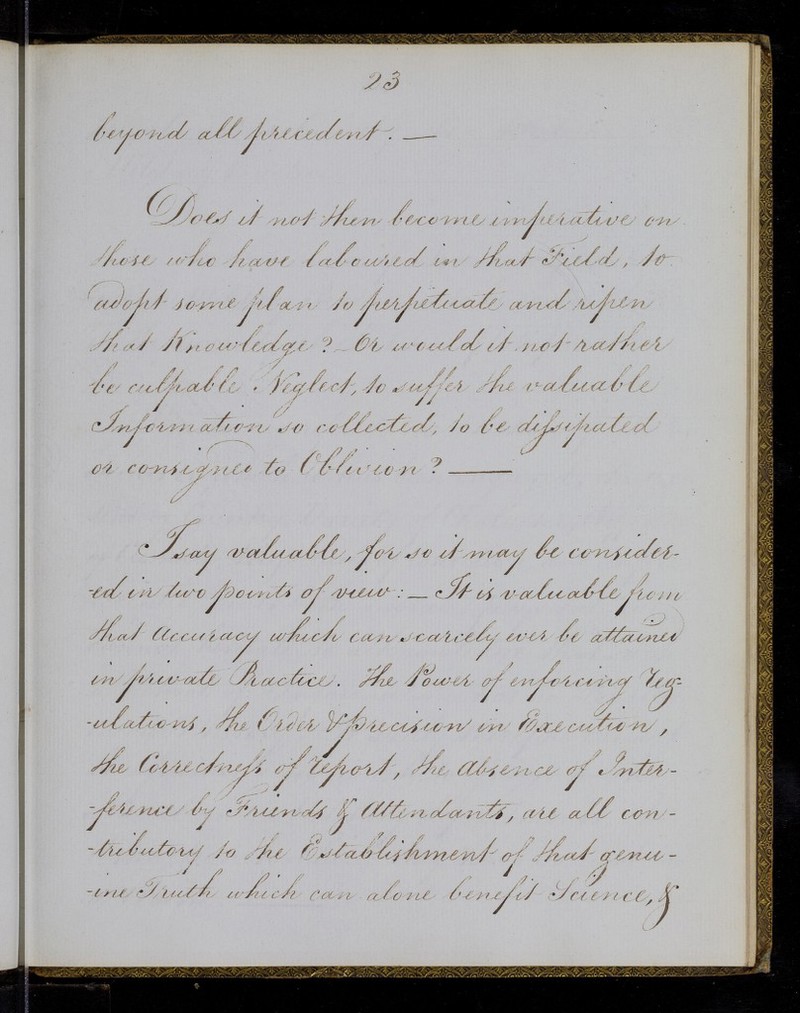 23
beyond all precedent. —
Does it not then become imperative on
those who have laboured in that Field, to
adopt some plan to perpetuate and ripen
that Knowledge? — Or would it not rather
be culpable Neglect, to suffer the valuable
Information so collected, to be diſsipated
or consigned to Oblivion? —
I say valuable, for so it may be consider-
-ed in two points of view: — It is valuable from
that Accuracy which can scarcely ever be attained
in private Practice. The Power of enforcing Reg-
-ulations, the Order & precision in Execution,
the Correctneſs of report, the absence of Inter-
-ference by Friends & Attendants, are all con-
-tributory to the Establishment of that genu-
-ine Truth which can alone benefit Science, &